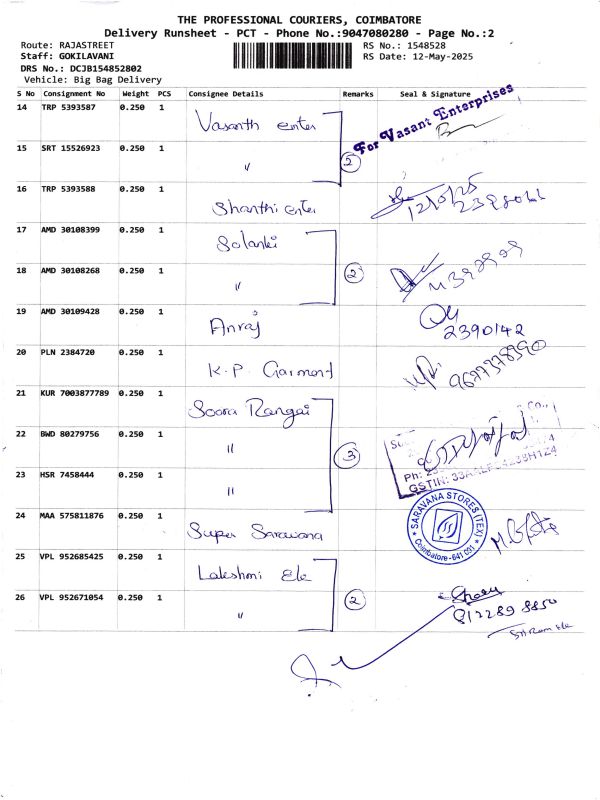 THE PROFESSIONAL COURIERS, COIMBATORE
Delivery Runsheet - PCT - Phone No.:9047080280 - Page No.:2
Route: RAJASTREET RS No.: 1548528
Staff: GOKILAVANI RS Date: 12-May-2025
DRS No.: DCJB154852802
Vehicle: Big Bag Delivery
S No Consignment No Weight PCS Consignee Details Remarks Seal & Signature
14 TRP 5393587 0.250 1 Vasanth enter For Vasant Enterprises
15 SRT 15526923 0.250 1 " 2
16 TRP 5393588 0.250 1 Shanthi enter
17 AMD 30108399 0.250 1 Solanki
18 AMD 30108268 0.250 1 " 2
19 AMD 30109428 0.250 1 Anraj 2390142
20 PLN 2384720 0.250 1 K.P Garment
21 KUR 7003877789 0.250 1 Soora Rangai
22 BWD 80279756 0.250 1 " 3
23 HSR 7458444 0.250 1 "
24 MAA 575811876 0.250 1 Super Saravana SARAVANA STORES (TEX) Coimbatore - 641 001
25 VPL 952685425 0.250 1 Lakshmi Ele
26 VPL 952671054 0.250 1 " 2